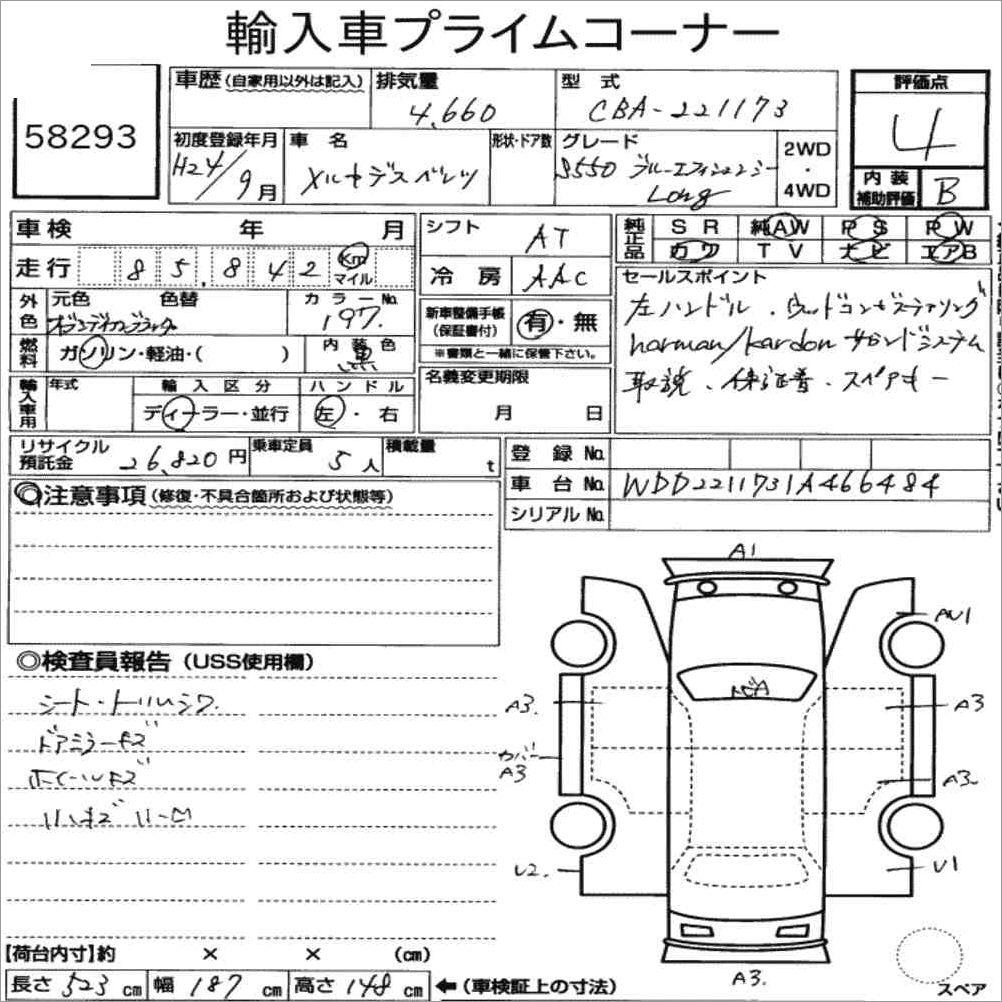 輸入車プライムコーナー
58293
車歴(自家用以外は記入)
排気量
4,660
型式
CBA-221173
評価点
4
初度登録年月
H24/9月
車名
メルセデスベンツ
形状・ドア数
グレード
S550 ブルーエフィシェンシー
Long
2WD
・
4WD
内装
補助評価
B
車検 年 月
シフト
AT
純正品
SR 純AW PS PW
カワ TV ナビ エアB
走行 85,842 Km
マイル
冷房
AAC
セールスポイント
左ハンドル、ウッドコンビステアリング
harman/kardon サウンドシステム
取説、保証書、スペアキー
外色
元色 色替
オブシディアンブラック
カラーNo.
197
新車整備手帳
(保証書付)
有・無
※書類と一緒に保管下さい。
燃料
ガソリン・軽油・( )
内装色
黒
輸入車用
年式
輸入区分
ディーラー・並行
ハンドル
左・右
名義変更期限
月 日
リサイクル
預託金
26,820円
乗車定員
5人
積載量
t
登録No.
車台No.
WDD2211731A466484
シリアルNo.
◎注意事項(修復・不具合箇所および状態等)
◎検査員報告(USS使用欄)
シート・トリムシワ
ドアミラーキズ
ホイールキズ
A1
AU1
A3.
A3
カバー
A3
A3.
U2.
U1
A3.
スペア
【荷台内寸】約 × × (cm)
長さ 523 cm 幅 187 cm 高さ 148 cm ←(車検証上の寸法)